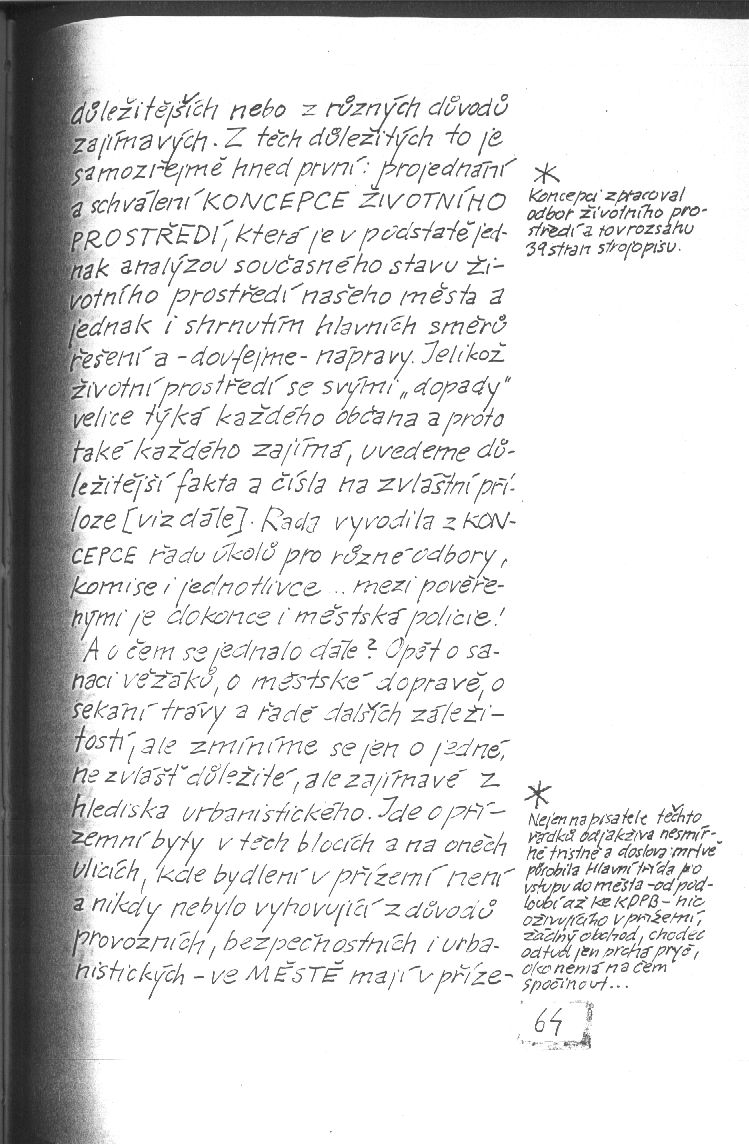 důležitějších nebo z různých důvodů
zajímavých. Z těch důležitých to je
samozřejmě hned první: projednání
a schválení KONCEPCE ŽIVOTNÍHO
PROSTŘEDÍ, která je v podstatě jed-
nak analýzou současného stavu ži-
votního prostředí našeho města a
jednak i shrnutím hlavních směrů
řešení a -doufejme- nápravy. Jelikož
životní prostředí se svými „dopady“
velice týká každého občana a proto
také každého zajímá, uvedeme dů-
ležitější fakta a čísla na zvláštní pří-
loze [viz dále]. Rada vyvodila z KON-
CEPCE řadu úkolů pro různé odbory,
komise i jednotlivce .. mezi pověře-
nými je dokonce i městská policie!
A o čem se jednalo dále? Opět o sa-
naci věžáků, o městské dopravě, o
sekání trávy a řadě dalších záleži-
tostí, ale zmíníme se jen o jedné,
ne zvlášť důležité, ale zajímavé z
hlediska urbanistického. Jde o pří-
zemní byty v těch blocích a na oněch
ulicích, kde bydlení v přízemí není
a nikdy nebylo vyhovující z důvodů
provozních, bezpečnostních i urba-
nistických - ve MĚSTĚ mají v příze-
*
Koncepci zpracoval
odbor životního pro-
středí a to v rozsahu
39 stran strojopisu.
*
Nejen na pisatele těchto
řádků odjakživa nesmír-
ně tristně a doslova mrtvě
působila Hlavní třída po
vstupu do města -od pod-
loubí až ke KDPB - nic
oživujícího v přízemí,
žádný obchod, chodec
odtud jen prchá pryč,
oko nemá na čem
spočinout...
64